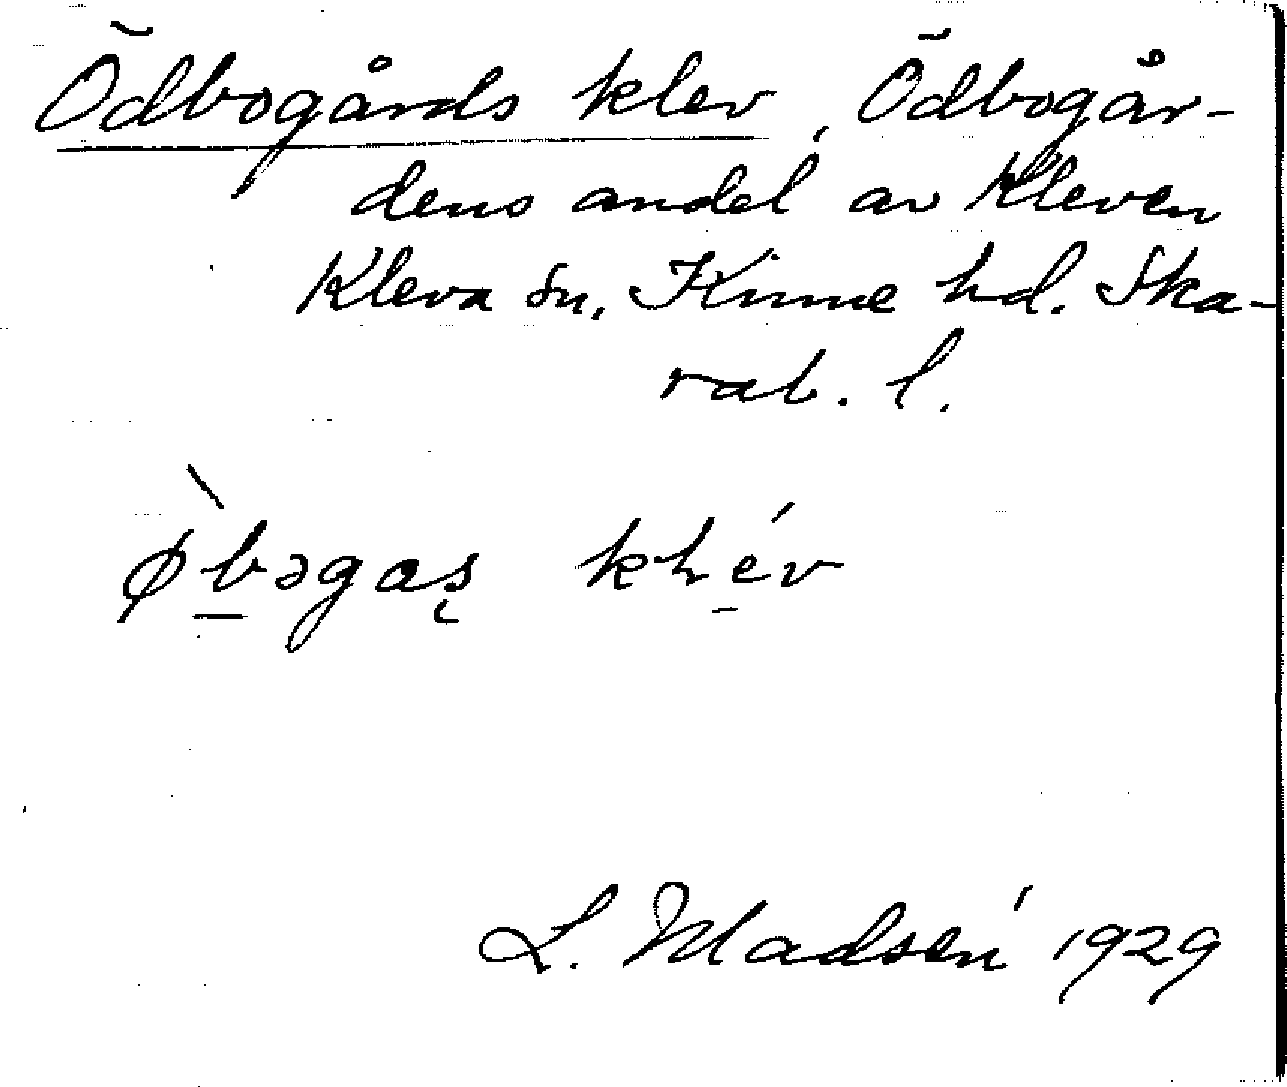 Ödbogårds klev, Ödbogår-
dens andel av Kleven
Kleva sn, Kinne hd. Ska-
rab. l.
L. Madsén 1929